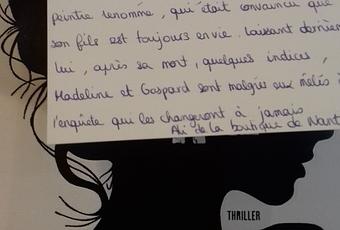 peintre renommé, qui était convaincu que
son fils est toujours envie. laissant derrière
lui, après sa mort, quelques indices,
Madeline et Gaspard sont malgrès eux mêlés à
l'enquête qui les changeront à jamais
de la boutique de Nant
THRILLER